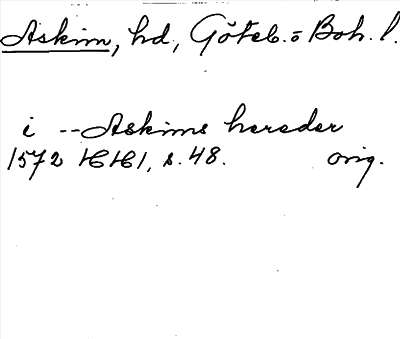 Askim, hd, Göteb. o Boh. l.
i -- Askims hereder
1572 HH1, s. 48. orig.